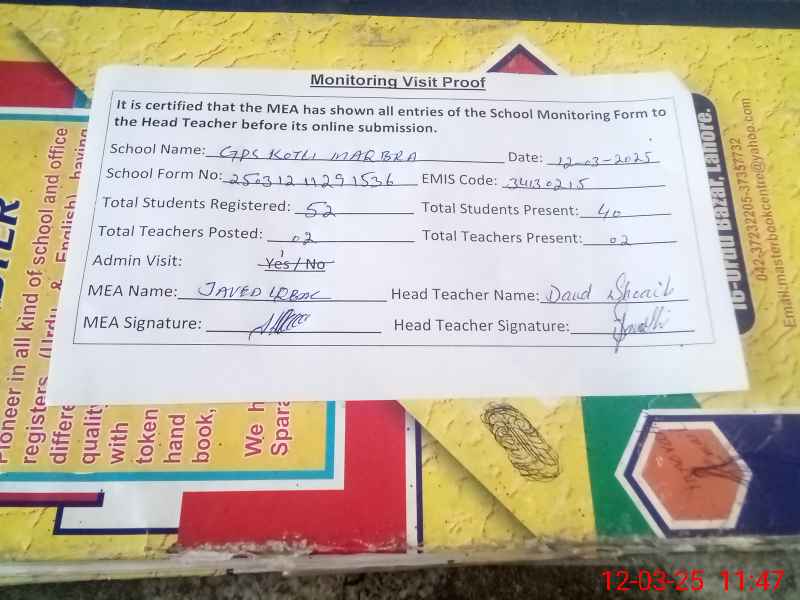 Monitoring Visit Proof
It is certified that the MEA has shown all entries of the School Monitoring Form to
the Head Teacher before its online submission.
School Name: GPS KOTLI MARBRA Date: 12-03-2025
School Form No: 25031211291536 EMIS Code: 34130215
Total Students Registered: 52 Total Students Present: 40
Total Teachers Posted: 02 Total Teachers Present: 02
Admin Visit: Yes / No
MEA Name: JAVED IQBAL Head Teacher Name: Daud Shoaib
MEA Signature: Head Teacher Signature:
16-Urdu Bazar, Lahore.
042-37232205-37357732
Email.masterbookcentre@yahoo.com
Pioneer in all kind of school and office
registers (Urdu & English) having
differe
quality
with
token
hand
book,
We h
Spara
12-03-25 11:47